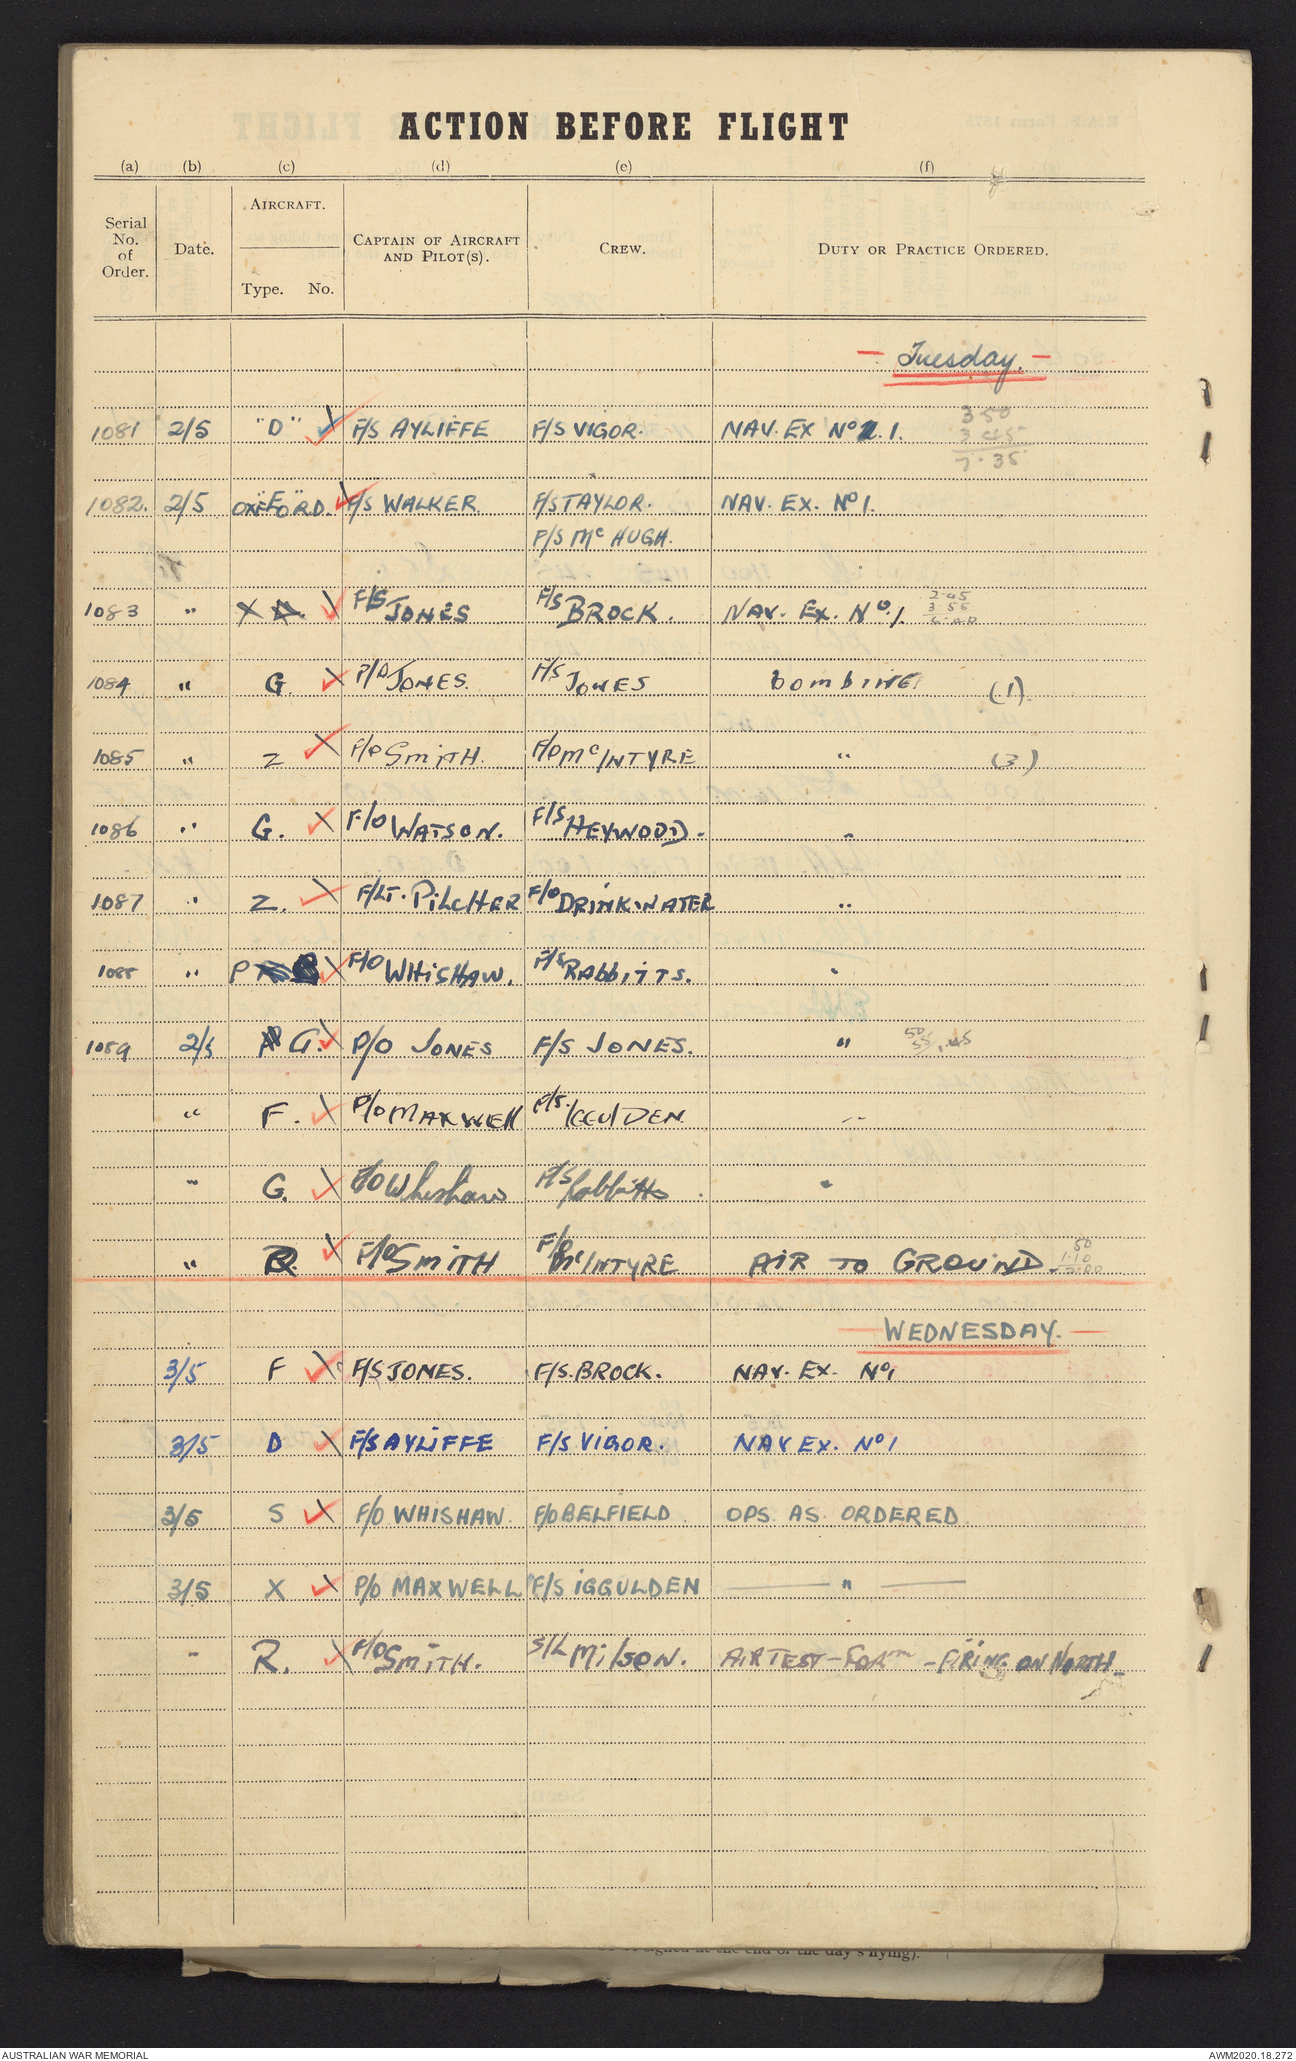 ACTION BEFORE FLIGHT
(a) (b) (c) (d) (e) (f)
Serial No. of Order. Date. AIRCRAFT. Type. No. CAPTAIN OF AIRCRAFT AND PILOT(S). CREW. DUTY OR PRACTICE ORDERED.
— Tuesday. —
1081 2/5 "D" F/S AYLIFFE F/S VIGOR. NAV. EX No 1.
350
345
7.35
1082. 2/5 OXFORD. F/S WALKER. F/S TAYLOR. NAV. EX. No 1.
F/S McHUGH.
1083 " X F/S JONES F/S BROCK. NAV. EX. No. 1.
2.45
3.55
1084 " G. P/O JONES. F/S JONES bombING (1)
1085 " Z F/O SMITH. F/O McINTYRE " (3)
1086 " G. F/O WATSON. F/S HEYWOOD. "
1087 " Z. F/LT. PILCHER F/O DRINKWATER "
1088 " P F/O WHISHAW. F/S RAbbITTS. "
1089 2/5 G. P/O JONES F/S JONES. "
50
55 1.45
" F. P/O MAXWEll F/S. IGGULDEN. "
" G. F/O Whishaw F/S Rabbitts. "
" R. F/O SMITH F/O McINTYRE AIR TO GROUND.
50
1.10
2.00
— WEDNESDAY. —
3/5 F F/S JONES. F/S. BROCK. NAV. EX. No 1
3/5 D F/S AYLIFFE F/S. VIGOR. NAV EX. No 1
3/5 S F/O WHISHAW. F/O BELFIELD OPS. AS. ORDERED.
3/5 X P/O MAXWELL F/S IGGULDEN — " —
" R. F/O SMITH. S/L Milson. AIR TEST – FORM – FIRING ON NORTH
at the end of the day's flying).
AUSTRALIAN WAR MEMORIAL
AWM2020.18.272